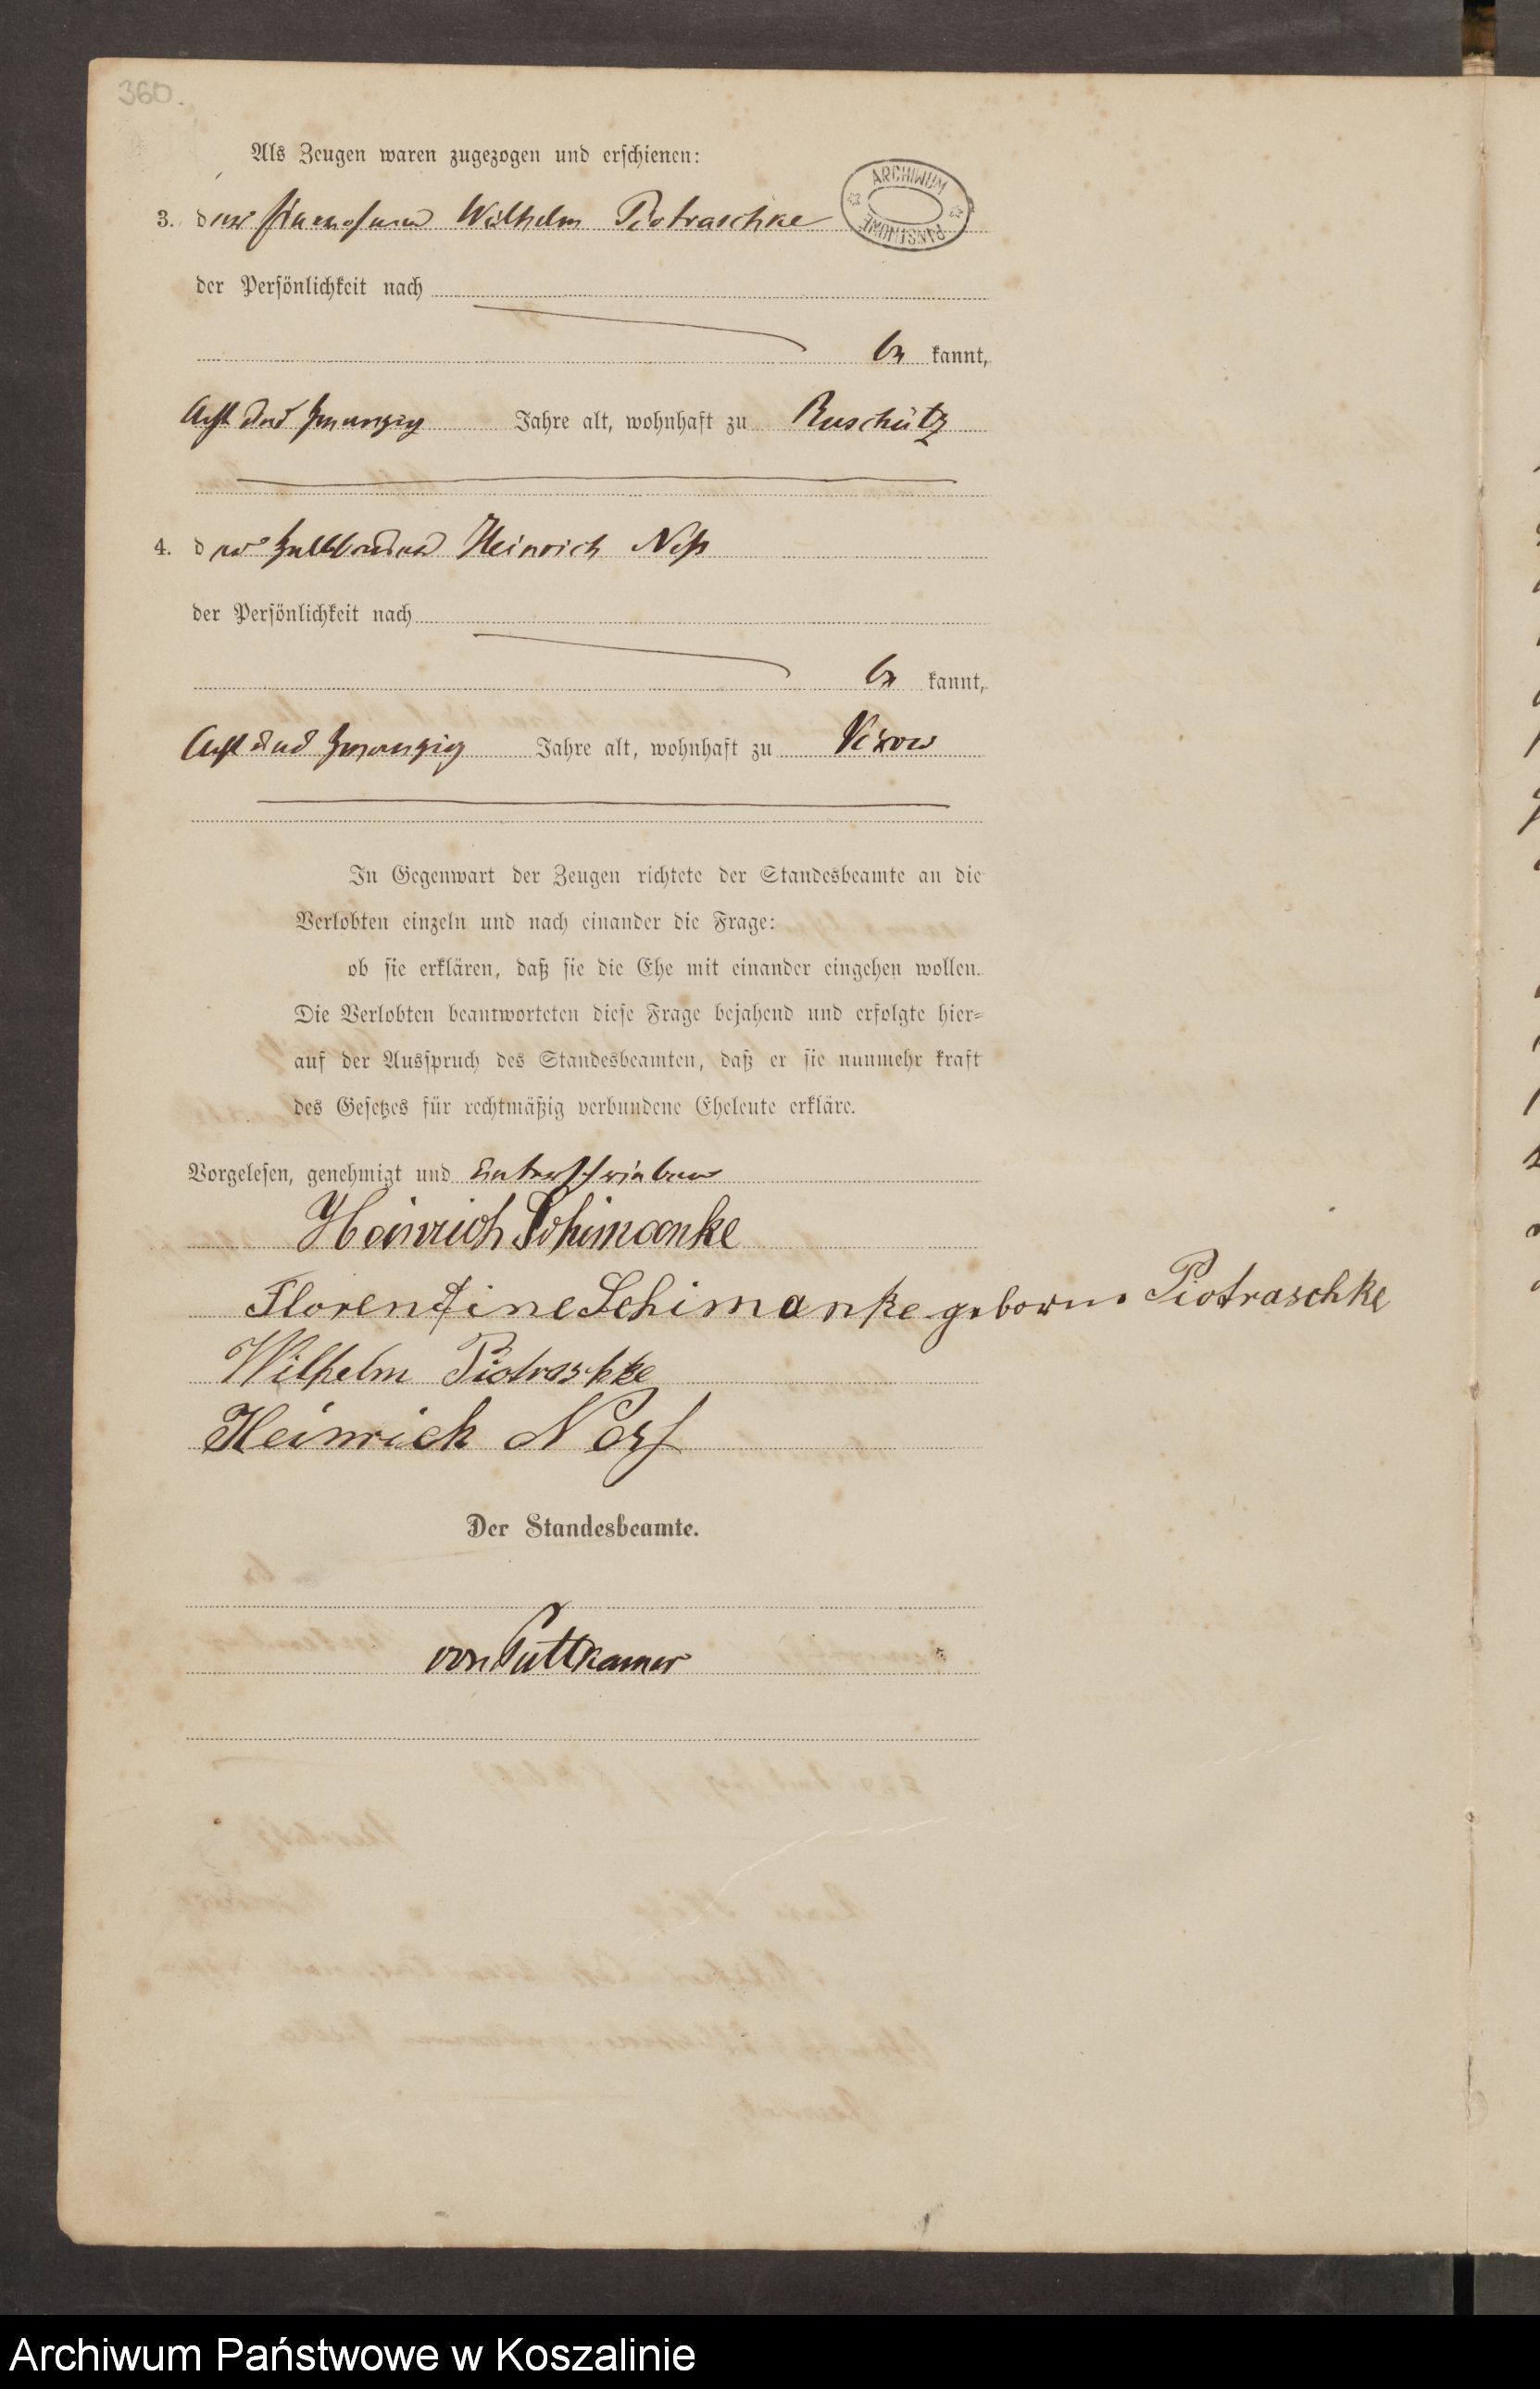 360.
Als Zeugen waren zugezogen und erschienen:
ARCHIWUM PAŃSTWOWE
3. der Wilhelm Piotraschke
der Persönlichkeit nach
be kannt,
Acht und zwanzig Jahre alt, wohnhaft zu Ruschütz
4. der Halbbauer Heinrich Neß
der Persönlichkeit nach
be kannt,
Acht und zwanzig Jahre alt, wohnhaft zu Vixow
In Gegenwart der Zeugen richtete der Standesbeamte an die
Verlobten einzeln und nach einander die Frage:
ob sie erklären, daß sie die Ehe mit einander eingehen wollen.
Die Verlobten beantworteten diese Frage bejahend und erfolgte hier=
auf der Ausspruch des Standesbeamten, daß er sie nunmehr kraft
des Gesetzes für rechtmäßig verbundene Eheleute erkläre.
Vorgelesen, genehmigt und unterschrieben
Heinrich Schimanke
Florentine Schimanke geborne Piotraschke
Wilhelm Piotraschke
Heinrich Neß
Der Standesbeamte.
von Puttkamer
Archiwum Państwowe w Koszalinie